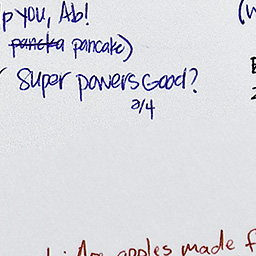 p you, Ab!
pancka pancake)
Super powers Good?
2/4
apples made f